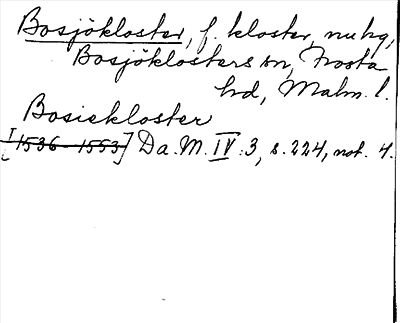 Bosjökloster, f. kloster, nu hg,
Bosjöklosters sn, Frosta
hd, Malm. l.
Bosiekloster
[1536-1553] Da. M. IV:3, s. 224, not. 4.